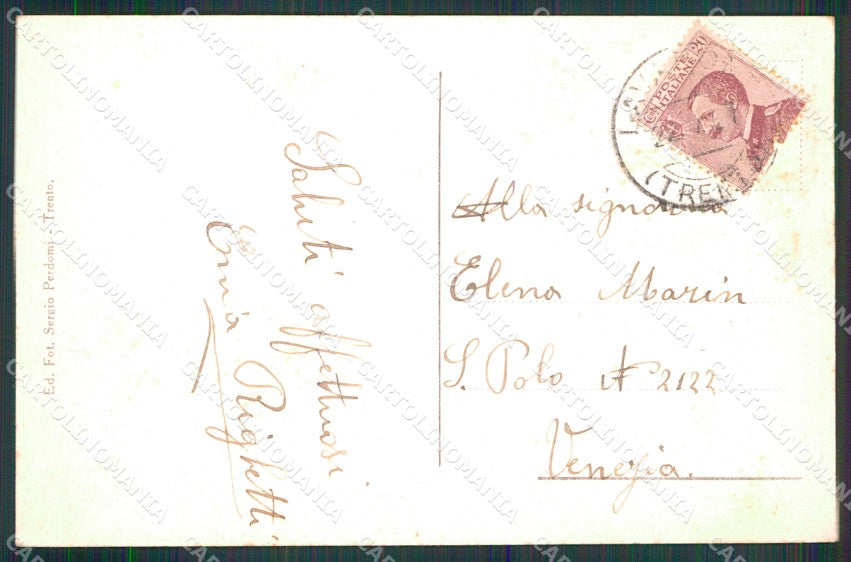 Ed. Fot. Sergio Perdomi - Trento.
Saluti affettuosi
Righetti
POSTE ITALIANE
CENT. 20
(TREN
Alla signorina
Elena Marin
S. Polo N 2122
Venezia.
CARTOLINOMANIA